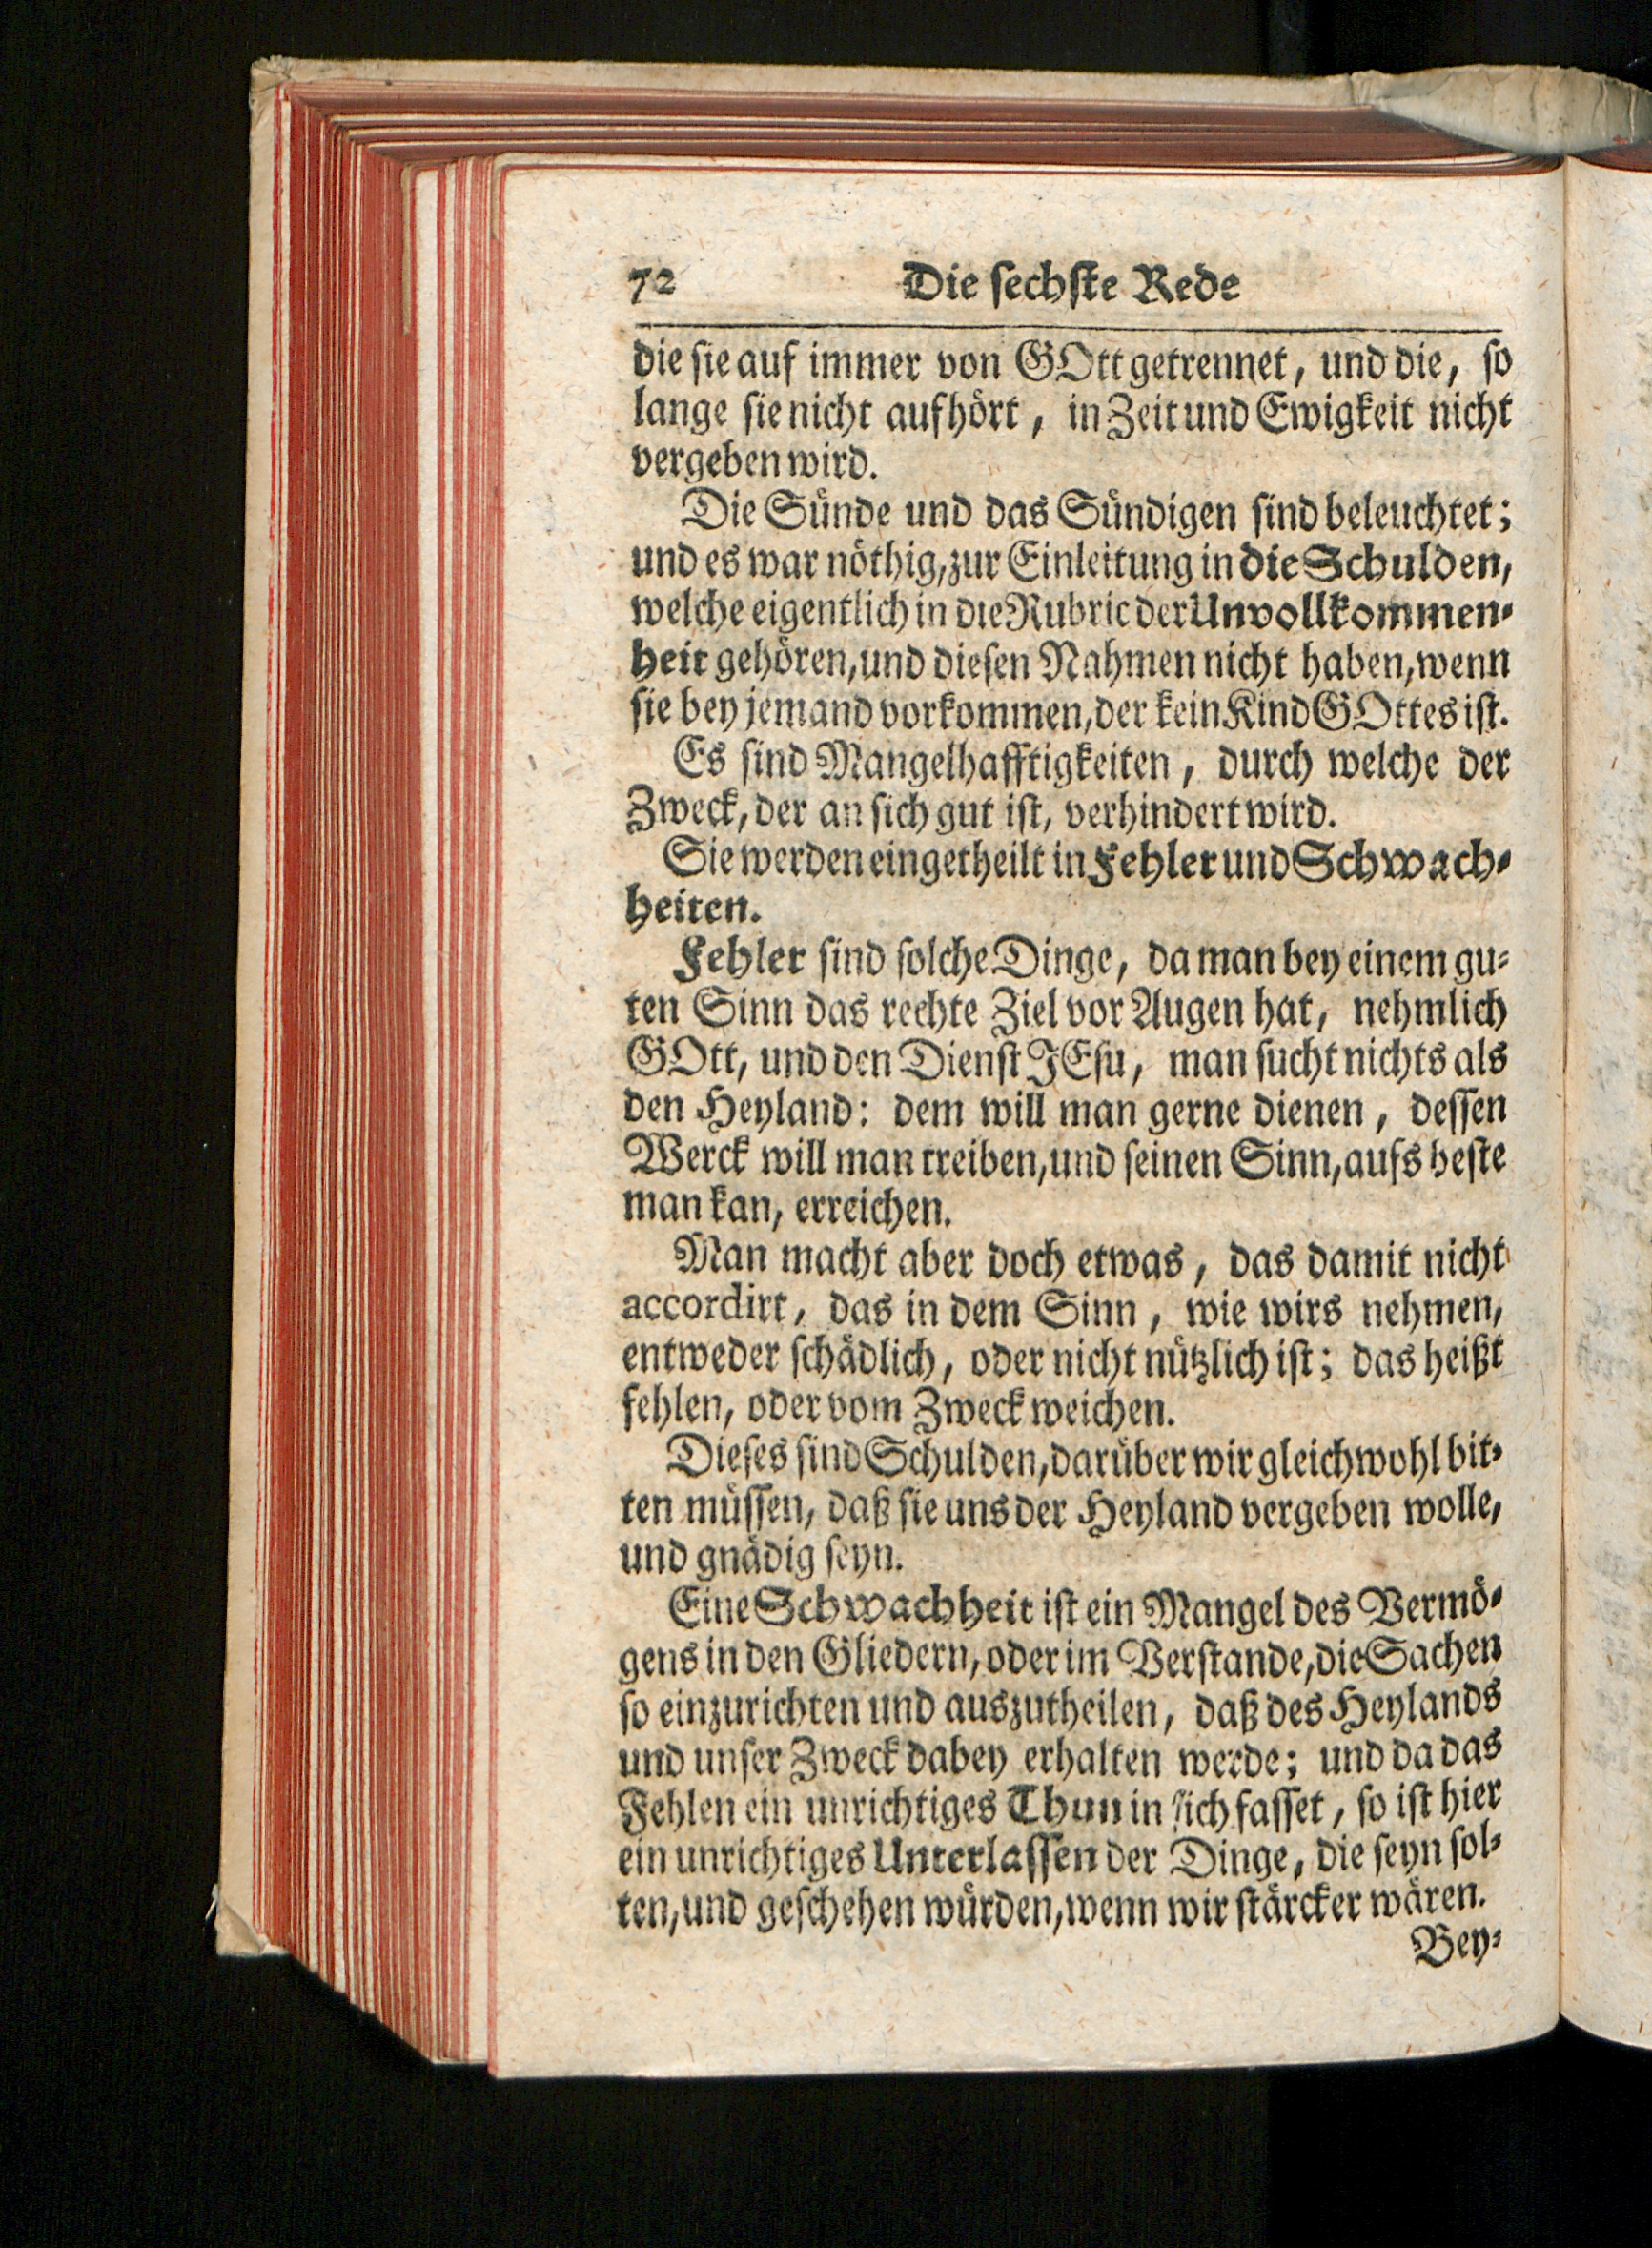 72 Die ſechſte Rede
die ſie auf immer von GOtt getrennet, und die, ſo
lange ſie nicht aufhört, in Zeit und Ewigkeit nicht
vergeben wird.
Die Sünde und das Sündigen ſind beleuchtet;
und es war nöthig, zur Einleitung in die Schulden,
welche eigentlich in die Rubric der Unvollkommen-
heit gehören, und dieſen Nahmen nicht haben, wenn
ſie bey jemand vorkommen, der kein Kind GOttes iſt.
Es ſind Mangelhafftigkeiten, durch welche der
Zweck, der an ſich gut iſt, verhindert wird.
Sie werden eingetheilt in Fehler und Schwach-
heiten.
Fehler ſind ſolche Dinge, da man bey einem gu-
ten Sinn das rechte Ziel vor Augen hat, nehmlich
GOtt, und den Dienſt JEſu, man ſucht nichts als
den Heyland: dem will man gerne dienen, deſſen
Werck will man treiben, und ſeinen Sinn, aufs beſte
man kan, erreichen.
Man macht aber doch etwas, das damit nicht
accordirt, das in dem Sinn, wie wirs nehmen,
entweder ſchädlich, oder nicht nützlich iſt; das heißt
fehlen, oder vom Zweck weichen.
Dieſes ſind Schulden, darüber wir gleichwohl bit-
ten müſſen, daß ſie uns der Heyland vergeben wolle,
und gnädig ſeyn.
Eine Schwachheit iſt ein Mangel des Vermö-
gens in den Gliedern, oder im Verſtande, die Sachen
ſo einzurichten und auszutheilen, daß des Heylands
und unſer Zweck dabey erhalten werde; und da das
Fehlen ein unrichtiges Thun in ſich faſſet, ſo iſt hier
ein unrichtiges Unterlaſſen der Dinge, die ſeyn ſol-
ten, und geſchehen würden, wenn wir ſtärcker wären.
Bey-